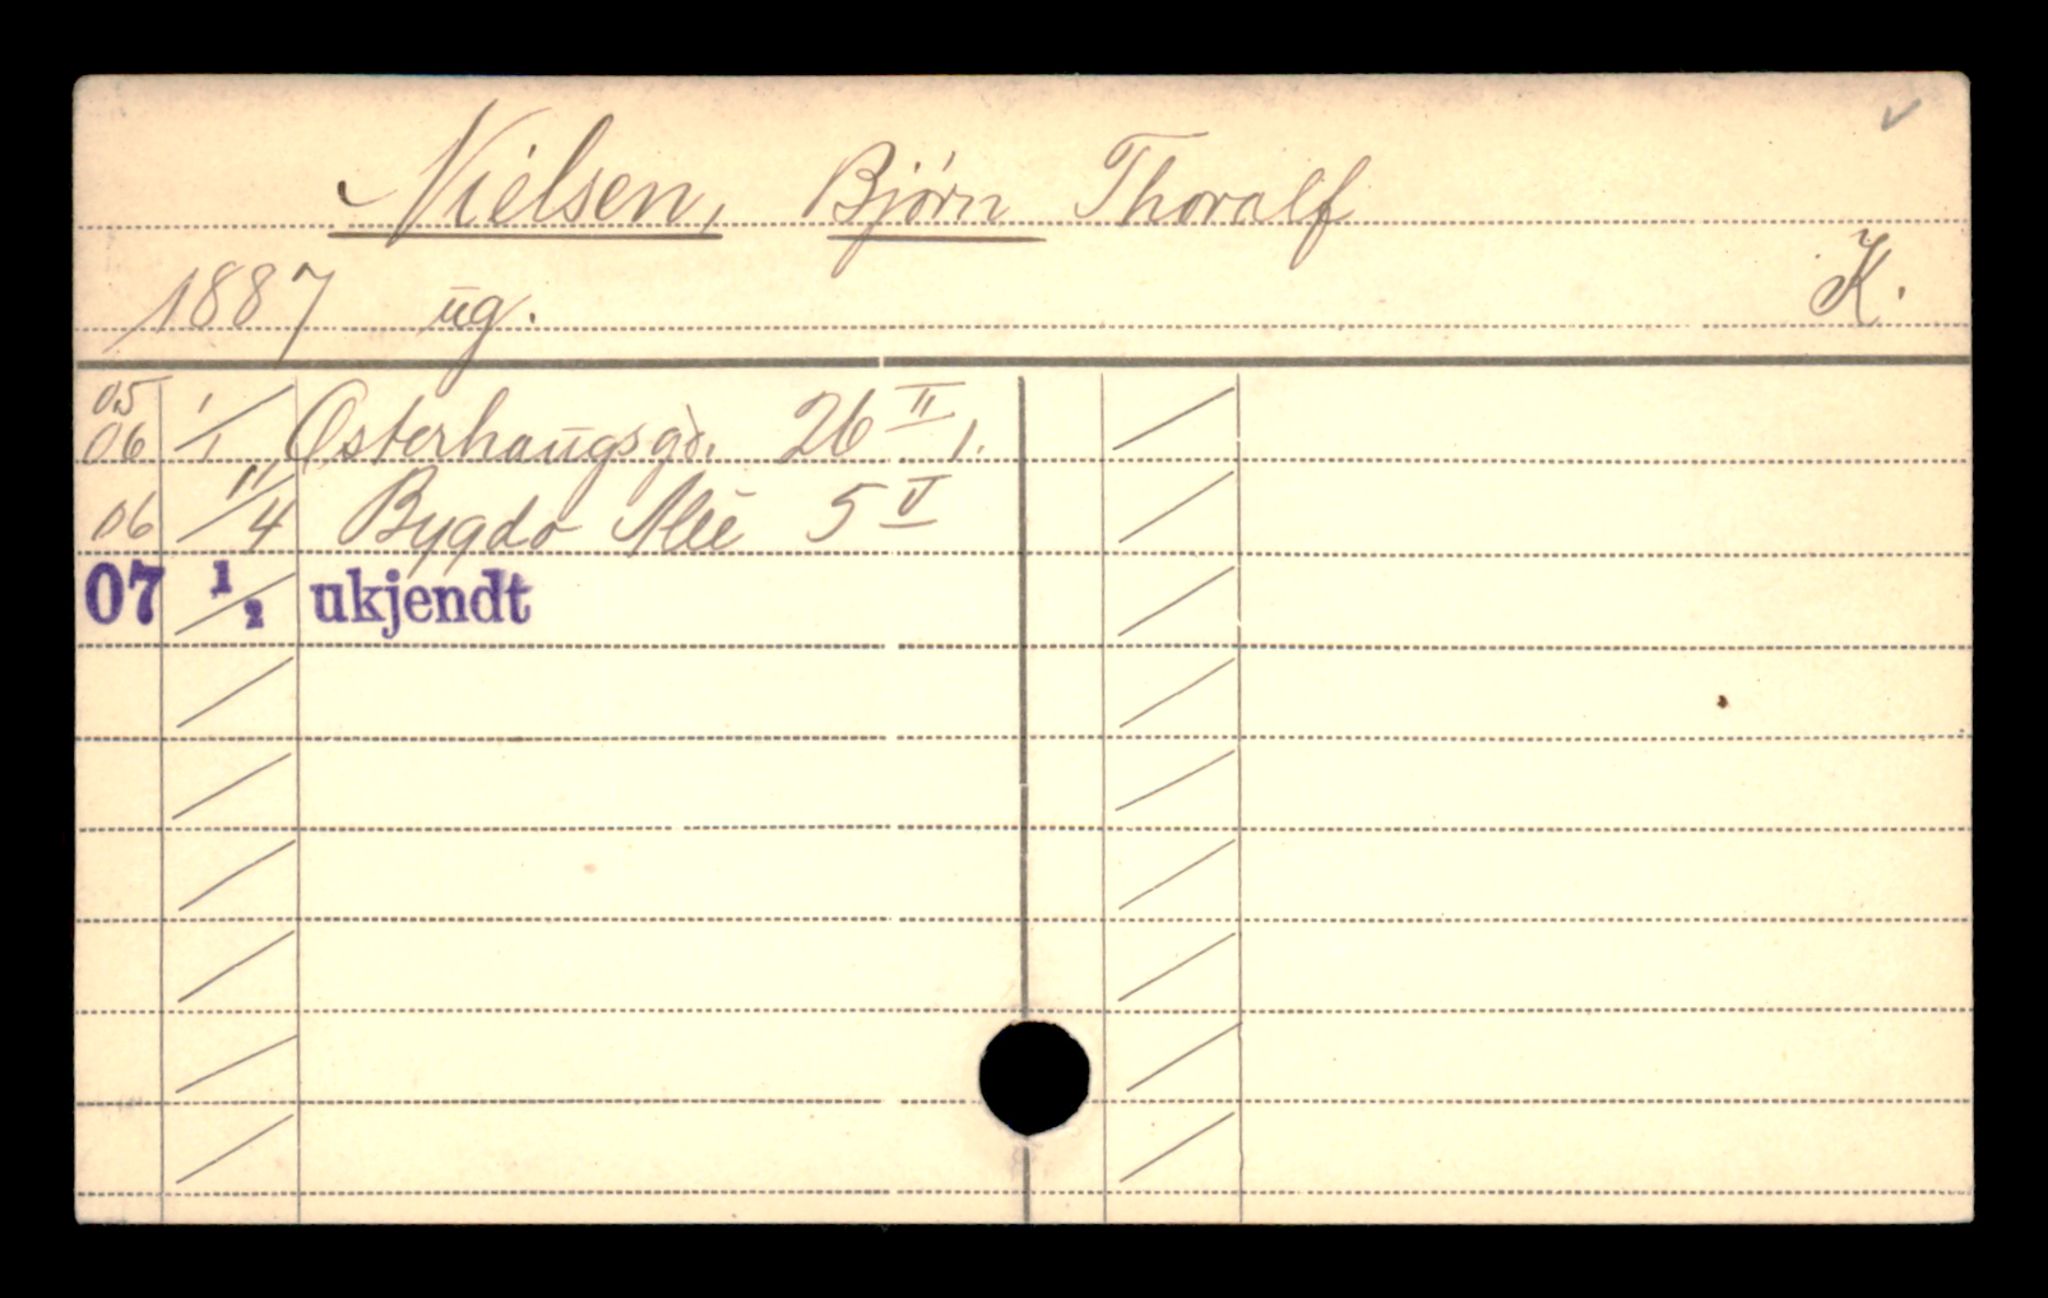 Nielsen, Bjørn Thoralf
1887 ug. K.
05
06 1/1 Osterhaugsgd. 26 II 1.
06 11/4 Bygdo Alle 5 V
07 1/2 ukjendt